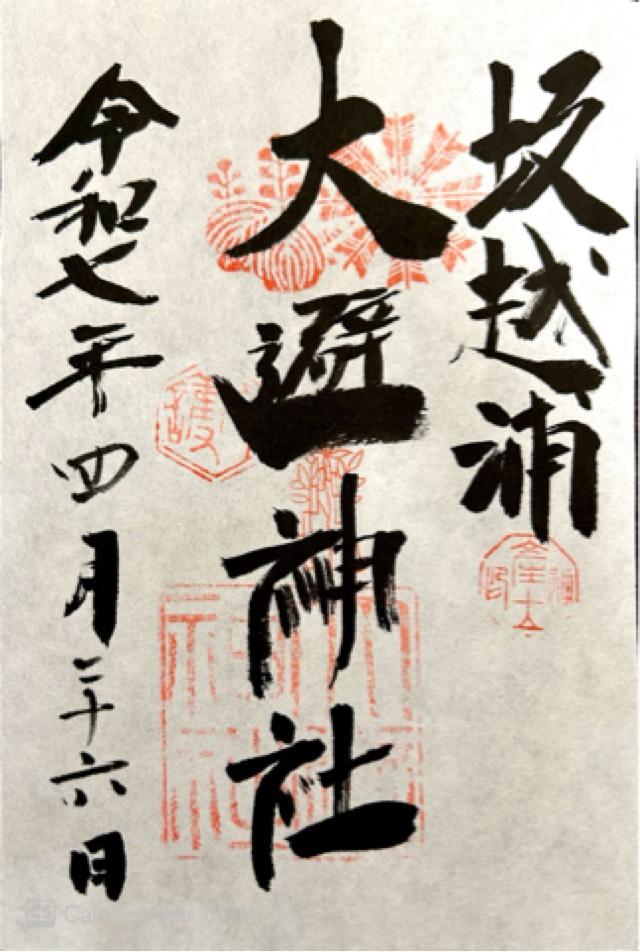 坂越浦
大避神社
令和七年四月二十六日
護